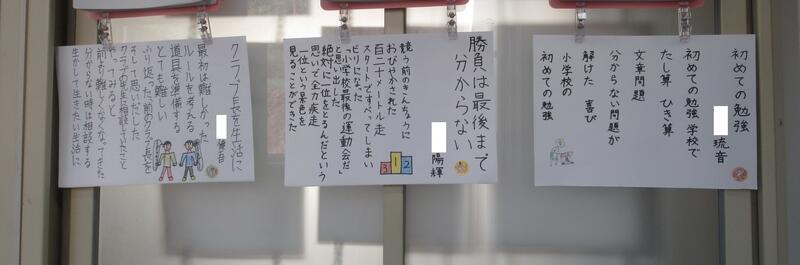 初めての勉強
琉音
初めての勉強 学校で
たし算 ひき算
文章問題
分からない問題が
解けた 喜び
小学校の
初めての勉強
勝負は最後まで
分からない
陽輝
競う前のきんちょうに
おびやかされた
百二十メートル走
スタートですべってしまい
ビリになった
「小学校最後の運動会だ」
と思い出した
絶対に一位をとるんだという
思いで全力疾走
一位という景色を
見ることができた
3 1 2
クラブ長を生活に
最初は難しかった
ルールを考える
道具を準備する
とても難しい
ふり返った前のクラブ長を
そして思いだした
クラブの先生に相談していたこと
やってみると
前より難しくなくなってきた
分からない時は相談する
生かして生きたい生活に